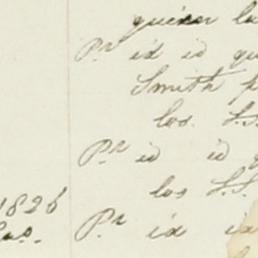 quien la
Pr id id qu
Smith p
los. S.S.
Pr id id q
los S.S.
1826
Pr id id